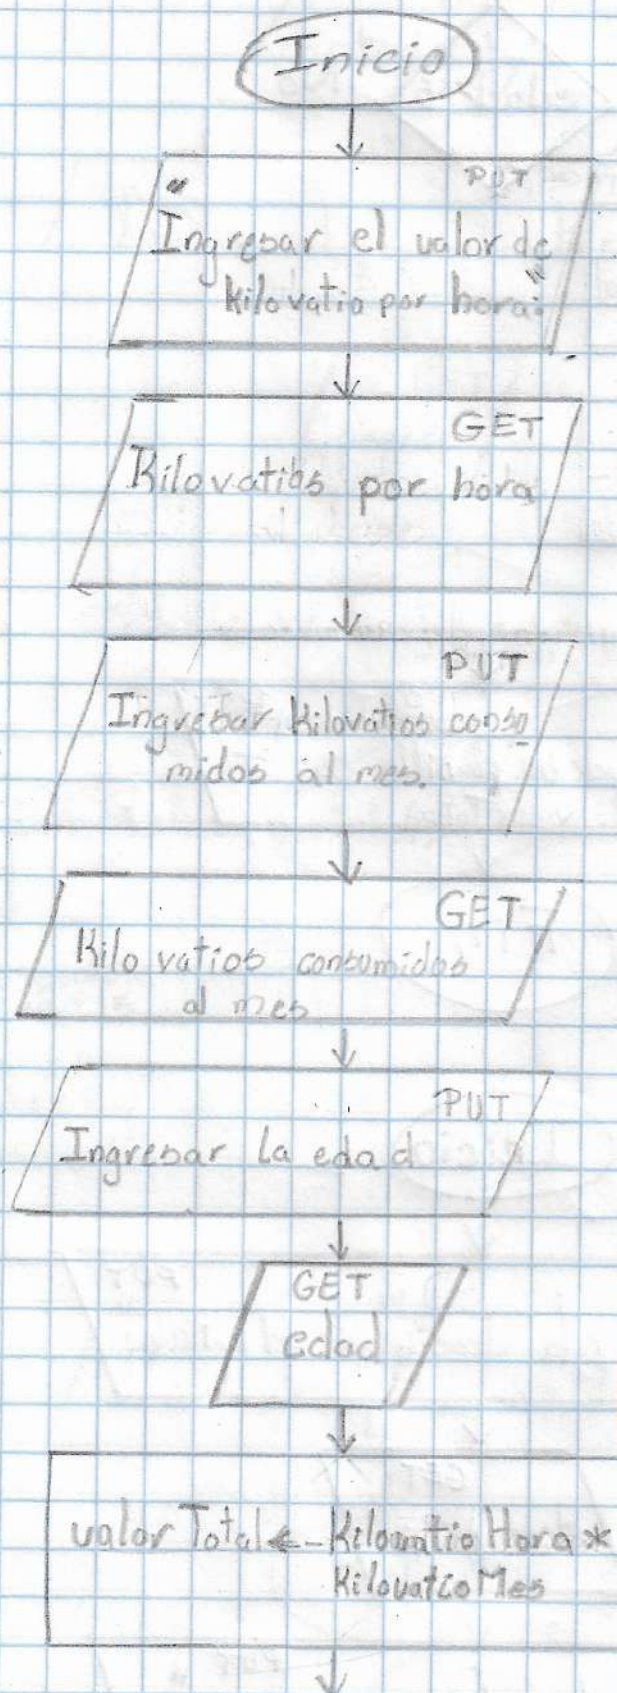 Inicio
PUT
"
Ingresar el valor de
kilovatio por hora:"
GET
Kilovatios por hora
PUT
Ingresar kilovatios consu
midos al mes.
GET
Kilovatios consumidos
al mes
PUT
Ingresar la edad
GET
edad
valorTotal ← KilovatioHora *
KilovatioMes